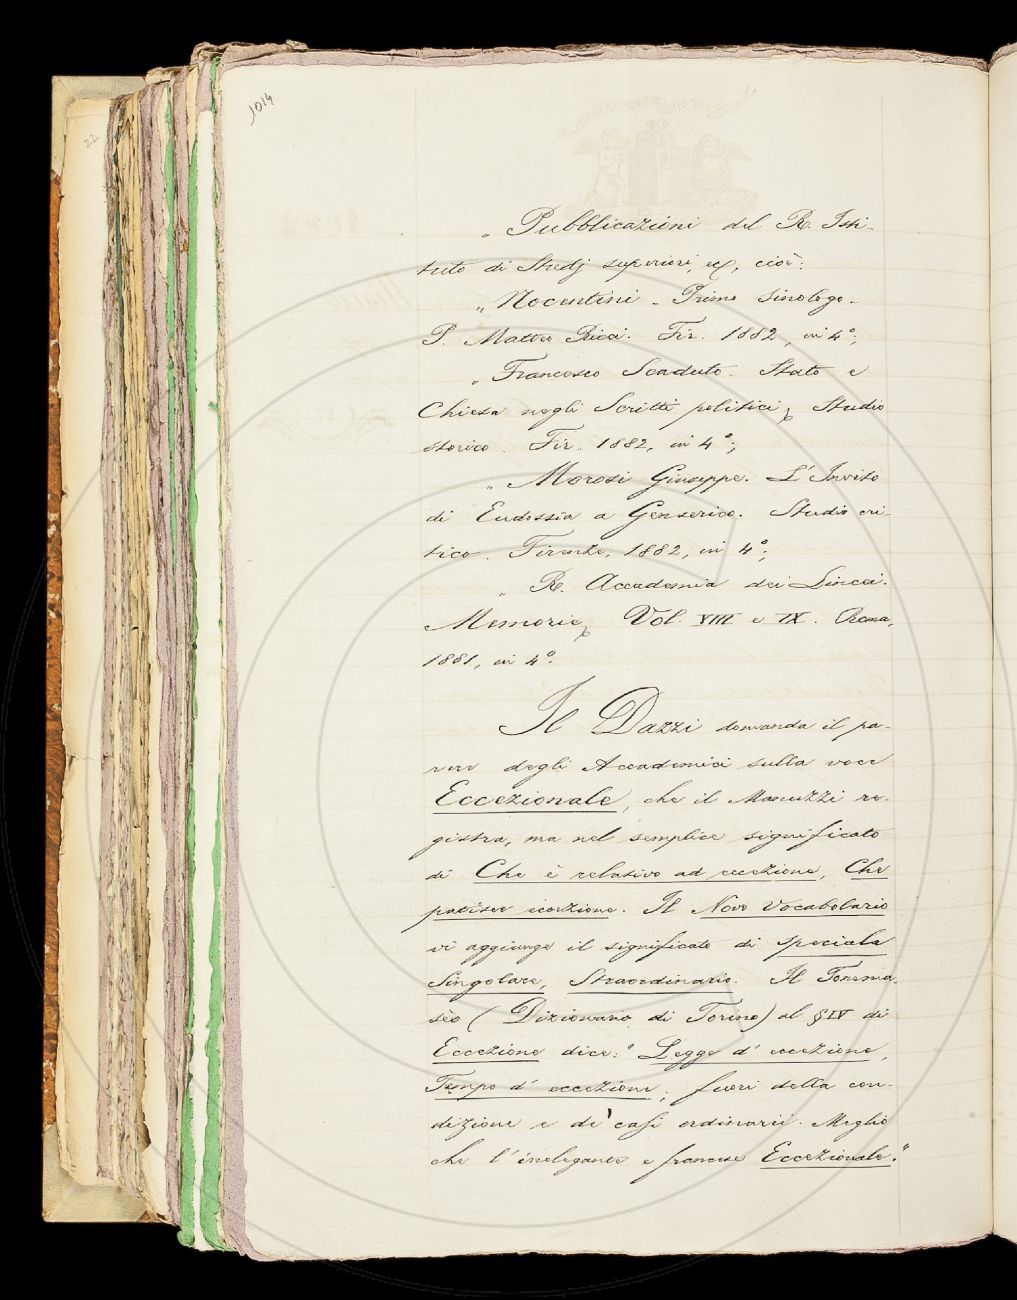 1014
22
„ Pubblicazioni del R. Isti-
tuto di Studj superiori, ec., cioè:
„ Nocentini - Primo sinologo -
P. Matteo Ricci. Fir. 1882, in 4°;
„ Francesco Scaduto. Stato e
Chiesa negli Scritti politici, Studio
storico. Fir. 1882, in 4°;
„ Morosi Giuseppe. L'Invito
di Eudossia a Genserico. Studio cri-
tico. Firenze, 1882, in 4°;
„ R. Accademia dei Lincei.
Memorie, Vol. VIII e IX. Roma,
1881, in 4°.
Il Dazzi domanda il pa-
rere degli Accademici sulla voce
Eccezionale, che il Manuzzi re-
gistra, ma nel semplice significato
di Che è relativo ad eccezione, Che
patisce eccezione. Il Novo Vocabolario
vi aggiunge il significato di Speciale
Singolare, Straordinario. Il Tomma-
sèo (Dizionario di Torino) al § IV di
Eccezione dice: "Legge d'eccezione,
Tempo d'eccezione; fuori della con-
dizione e de' casi ordinarii. Meglio
che l'inelegante e francese Eccezionale."